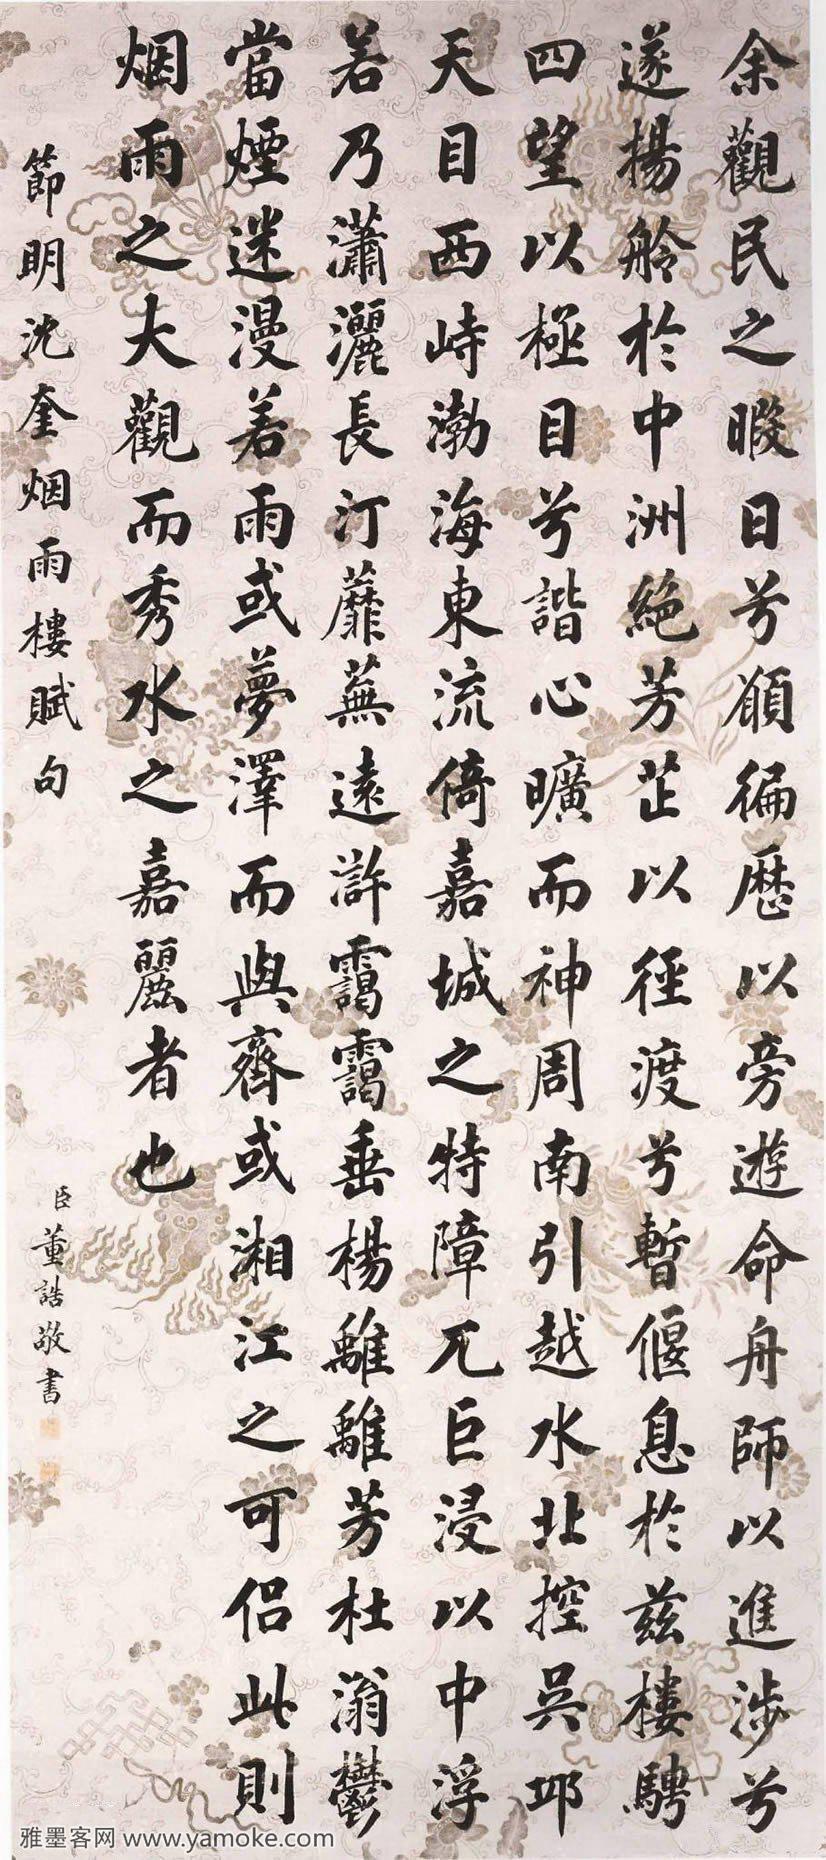 余觀民之暇日兮願徧歷以旁遊命舟師以進涉兮
遂揚舲於中洲絶芳芷以徑渡兮暫偃息於茲樓騁
四望以極目兮諧心曠而神周南引越水北控吳邛
天目西峙渤海東流倚嘉城之特障兀巨浸以中浮
若乃瀟灑長汀蘼蕪遠滸靄靄垂楊離離芳杜滃鬱
當煙迷漫若雨或夢澤而與齊或湘江之可侣此則
烟雨之大觀而秀水之嘉麗者也
節明沈奎烟雨樓賦句
臣董誥敬書
雅墨客网 www.yamoke.com